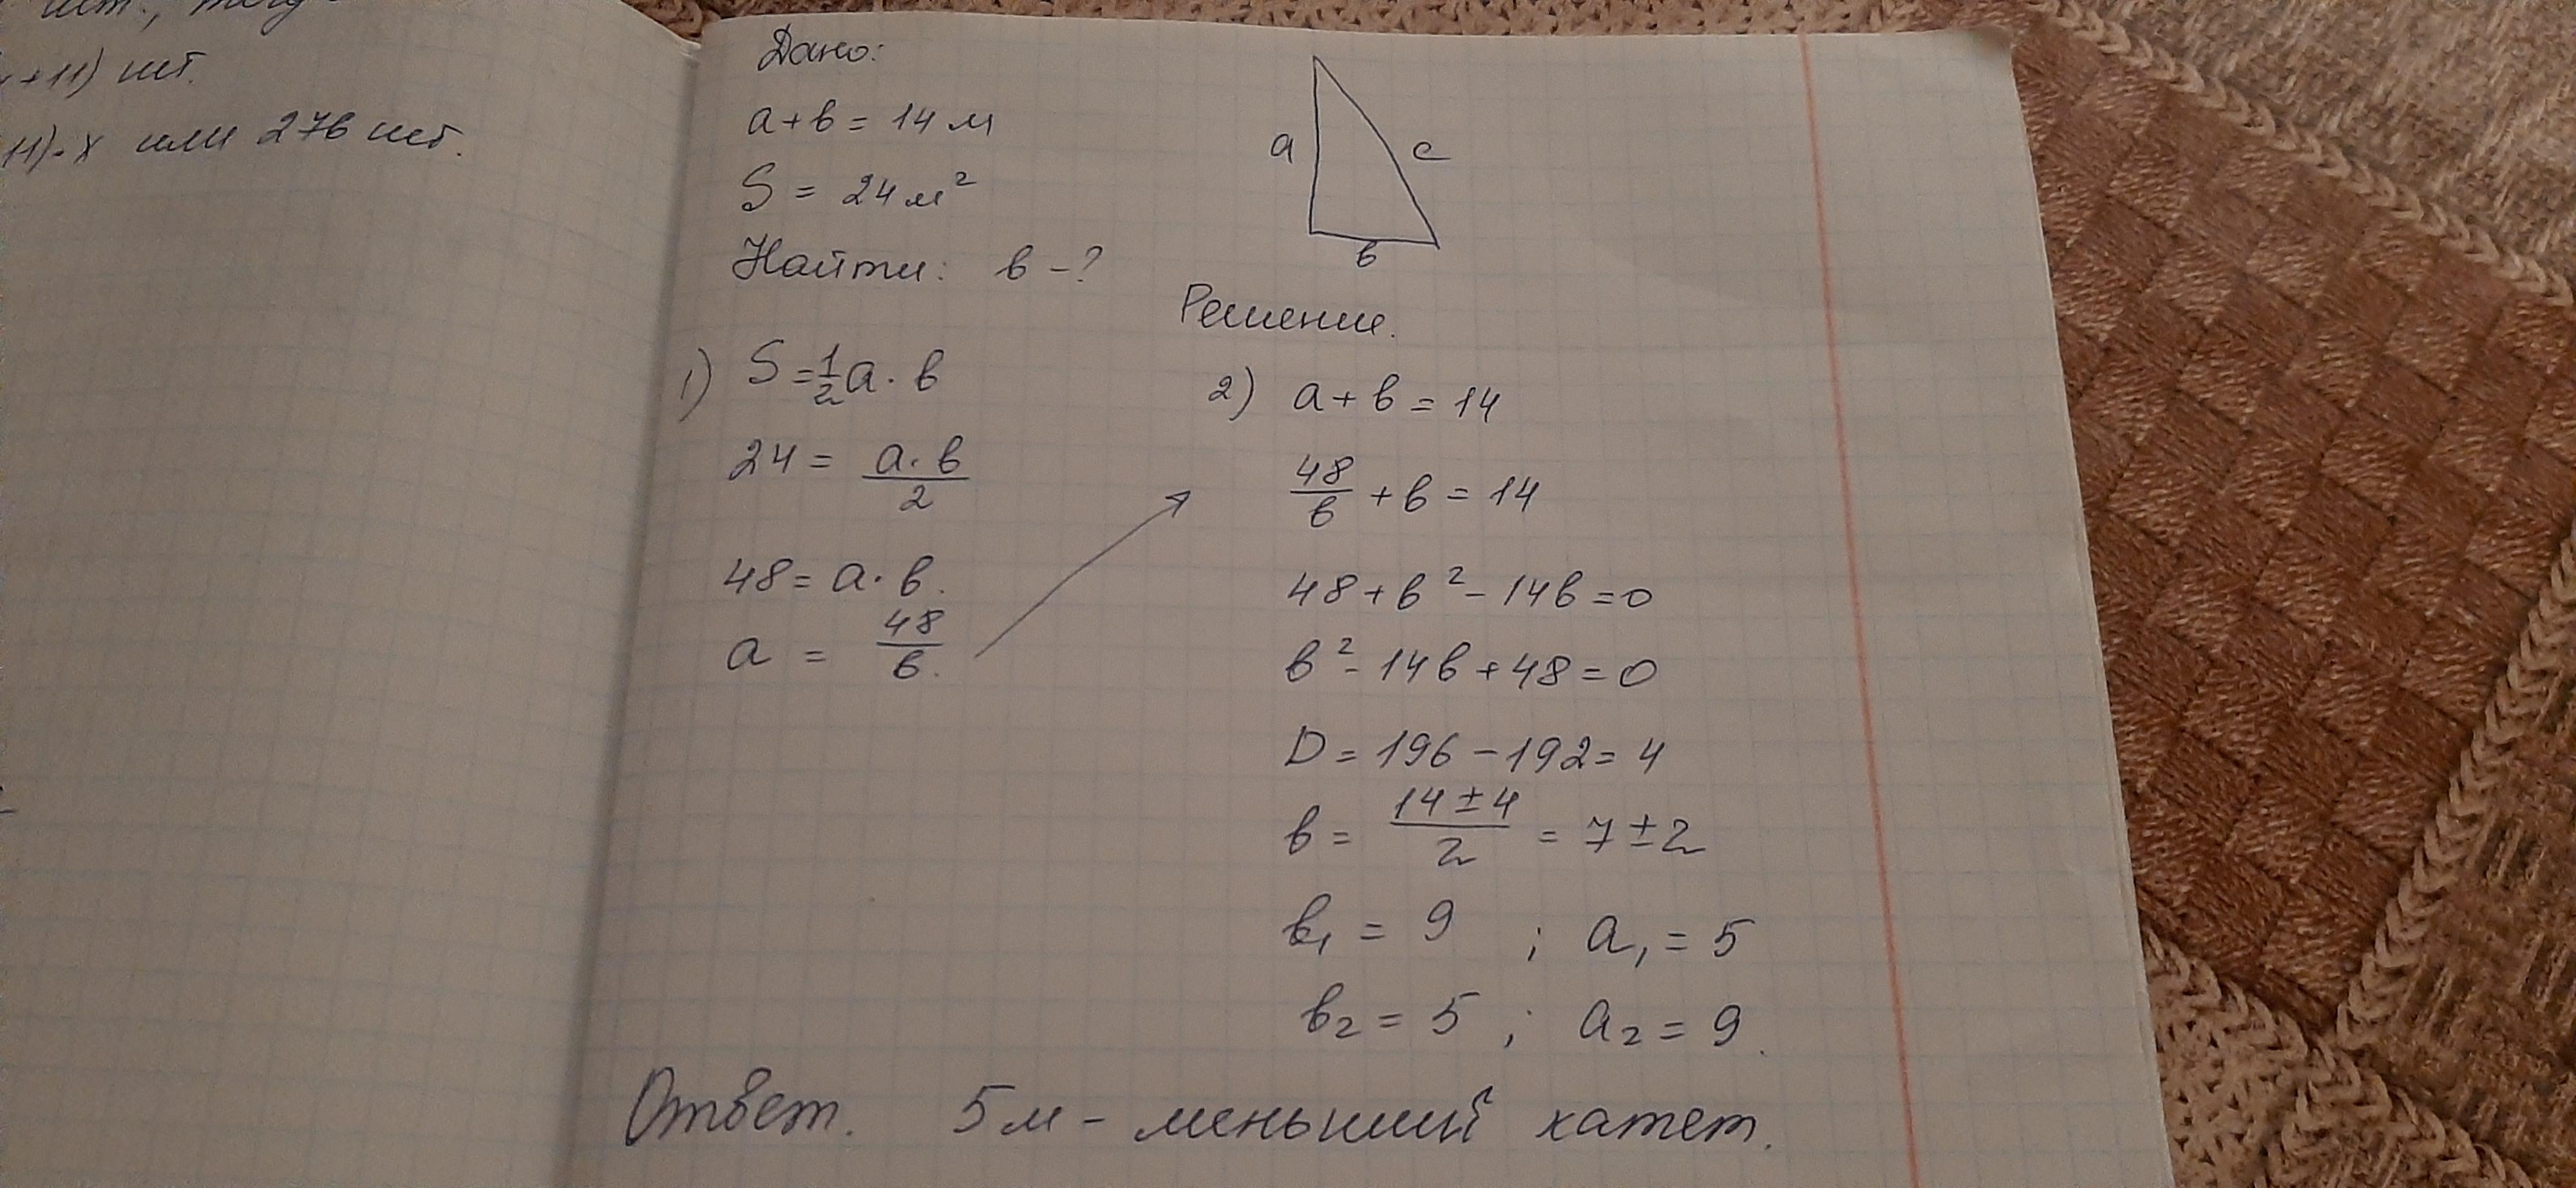 шт.,
+11) шт.
11)·х или 276 шт.
Дано:
а+в = 14 м
S = 24 м²
Найти: в -?
а
с
в
Решение.
1) S = 1/2 а · в
24 = а·в/2
48 = а·в.
а = 48/в.
2) а + в = 14
48/в + в = 14
48 + в² - 14в = 0
в² - 14в + 48 = 0
D = 196 - 192 = 4
в = 14±4/2 = 7 ± 2
в₁ = 9 ; а₁ = 5
в₂ = 5 ; а₂ = 9.
Ответ. 5 м - меньший катет.